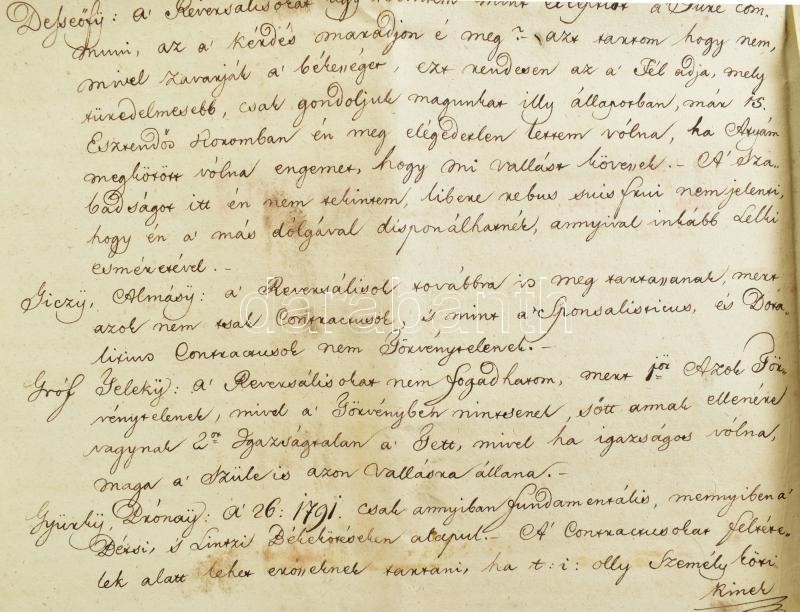 Desseőfy: a' Reversalisokat ugy tekintem mint exceptiot a' Jure com-
muni, az a' kérdés maradjon é meg? azt tartom hogy nem,
mivel zavarják a' békességet, ezt rendesen az a' Fél adja, mely
türedelmesebb, csak gondoljuk magunkat illy állapotban, már 15.
Esztendős Koromban én meg elégedetlen lettem vólna, ha Atyám
megkötött vólna engemet, hogy mi vallást kövessek. – A' Sza-
badságot itt én nem tekintem, libere rebus suis frui nem jelenti,
hogy én a' más dólgával disponálhatnék, annyival inkább Lelki
esméretével. –
Giczy, Almásy: a' Reversálisok továbbra is meg tartassanak, mert
azok nem tsak Contractusok, 's mint a' Sponsalisticus, és Dota-
litius Contractusok nem Törvénytelenek. –
Gróf Teleky: a' Reversálisokat nem fogadhatom, mert 1ör Azok Tör-
vénytelenek, mivel a' Törvényben nintsenek, sőtt annak ellenére
vagynak 2or Igazságtalan a' Tett, mivel ha igazságos vólna,
maga a' Szüle is azon Vallásra állana. –
Gyürky, Prónaÿ: a' 26: 1791. csak annyiban fundamentális, mennyiben a'
Bétsi, 's Lintzi Békekötéseken alapul. – A' Contractusokat feltéte-
lek alatt lehet erőseknek tartani, ha t: i: olly Személy köti
kinek
darabanth